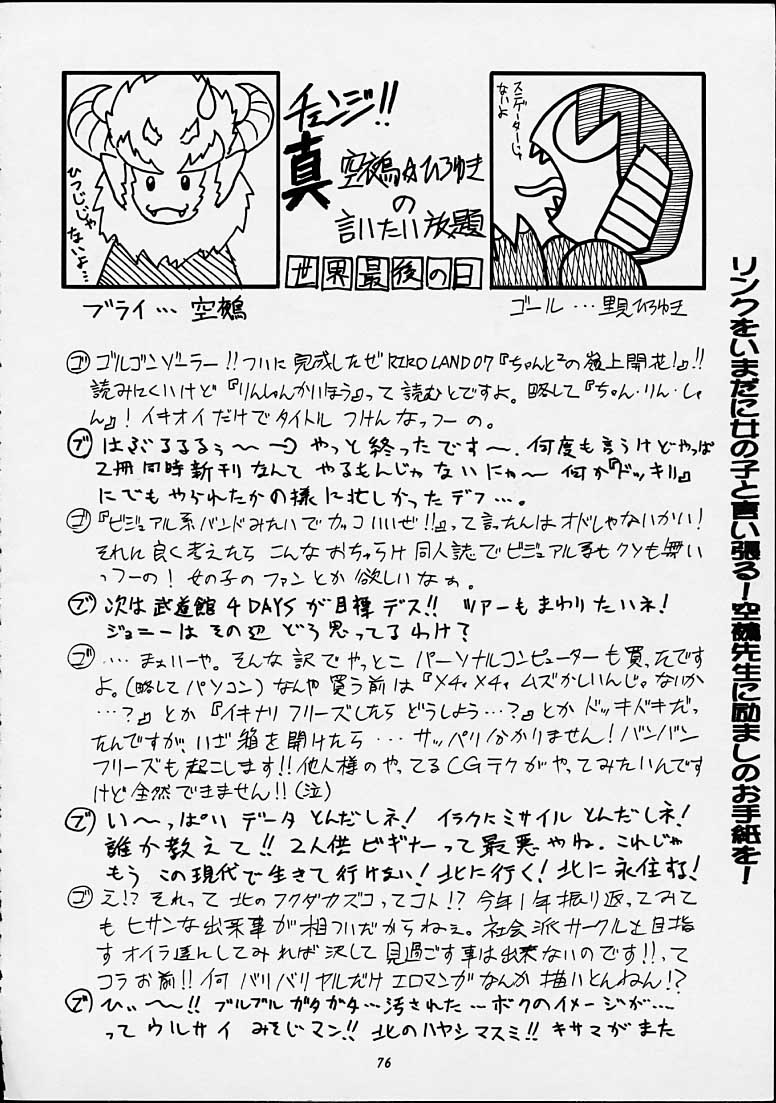 チェンジ!!
真 空鵺☆ひろゆき
の
言いたい放題
世界最後の日
ひつじじゃ
ないよ…
ブライ… 空鵺
スモデーターじゃ
ないよ
ゴール …里見ひろゆき
ゴ ゴルゴンゾーラー!!ついに完成したぜRIROLAND07『ちゃんと²の嶺上開花!』!!
読みにくいけど『りんしゃんかいほう』って読むとですよ。略して『ちゃん・りん・しゃ
ん』!イキオイだけでタイトルつけんなっつーの。
ブ はぶるるるぅ〜〜 やっと終ったです〜。何度も言うけどやっぱ
2冊同時新刊なんてやるもんじゃないにゃ〜何か『ドッキリ』
にでもやられたかの様に忙しかったデス…。
ゴ 『ビジュアル系バンドみたいでカッコいいぜ!!』って言ったんはオドレじゃないかい!
それに良く考えたらこんなおちゃらけ同人誌でビジュアル系もクソも無い
っつーの!女の子のファンとか欲しいなぁ。
ブ 次は武道館4DAYSが目標デス!! ツアーもまわりたいネ!
ジョニーはその辺どう思ってるわけ?
ゴ …まぁいーや。そんな訳でやっとこパーソナルコンピューターも買ったです
よ。(略してパソコン)なんや買う前は『メチャメチャムズかしいんじゃないか
…?』とか『イキナリフリーズしたらどうしよう…?』とかドッキドキだっ
たんですが、いざ箱を開けたら…サッパリ分かりません!バンバン
フリーズも起こします!!他人様のやってるCGテクがやってみたいんです
けど全然できません!!(泣)
ブ い〜っぱいデータとんだしネ!イラクにミサイルとんだしネ!
誰か教えて!!2人供ビギナーって最悪やね。これじゃ
もうこの現代で生きて行けない!北に行く!北に永住する!
ゴ え!?それって北のフクダカズコってコト!?今年1年振り返ってみて
もヒサンな出来事が相ついだからねぇ。社会派サークルを目指
すオイラ達んしてみれば決して見過ごす事は出来ないのです!!って
コラお前!!何バリバリヤルだけエロマンガなんか描いとんねん!?
ブ ひぃ〜〜!!ブルブルガタガタ…汚された…ボクのイメージが…
ってウルサイみそじマン!!北のハヤシマスミ!!キサマがまた
リンクをいまだに女の子と言い張る!空鵺先生に励ましのお手紙を!
76